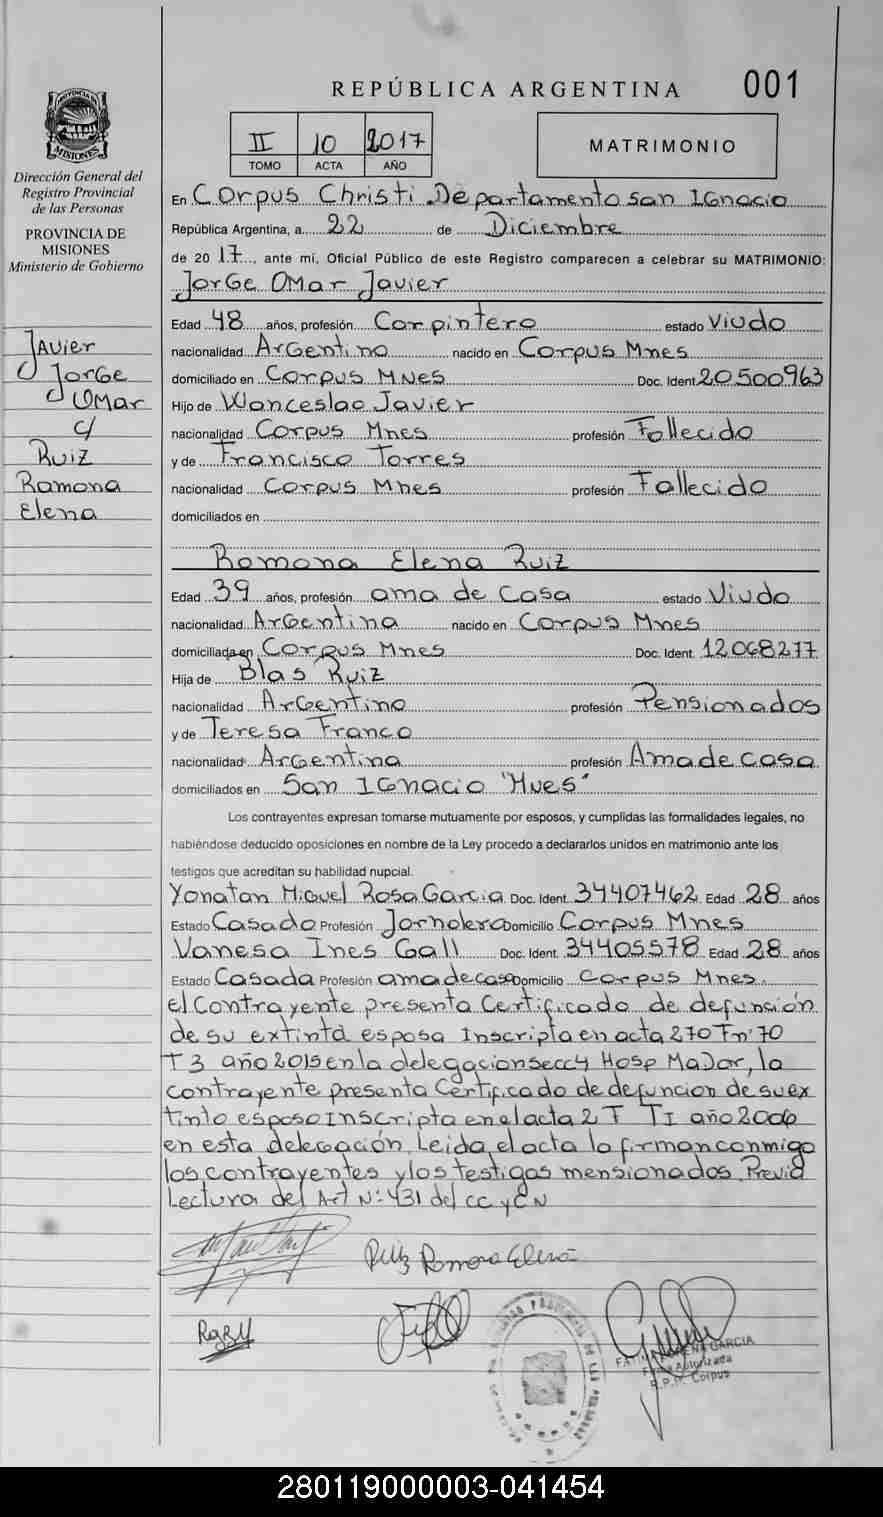 REPÚBLICA ARGENTINA 001
PROVINCIA DE
MISIONES
Dirección General del
Registro Provincial
de las Personas
PROVINCIA DE
MISIONES
Ministerio de Gobierno
II 10 2017
TOMO ACTA AÑO
MATRIMONIO
En Corpus Christi Departamento San Ignacio
República Argentina, a 22 de Diciembre
de 2017, ante mí, Oficial Público de este Registro comparecen a celebrar su MATRIMONIO:
Jorge Omar Javier
Edad 48 años, profesión Carpintero estado Viudo
nacionalidad Argentino nacido en Corpus Mnes
domiciliado en Corpus Mnes Doc. Ident 20500963
Hijo de Wanceslao Javier
nacionalidad Corpus Mnes profesión Fallecido
y de Francisca Torres
nacionalidad Corpus Mnes profesión Fallecido
domiciliados en
Javier
Jorge
Omar
c/
Ruiz
Ramona
Elena
Ramona Elena Ruiz
Edad 39 años, profesión ama de casa estado Viuda
nacionalidad Argentina nacido en Corpus Mnes
domiciliada en Corpus Mnes Doc. Ident. 12068277
Hija de Blas Ruiz
nacionalidad Argentino profesión Pensionados
y de Teresa Franco
nacionalidad Argentina profesión Ama de casa
domiciliados en San Ignacio "Mnes"
Los contrayentes expresan tomarse mutuamente por esposos, y cumplidas las formalidades legales, no
habiéndose deducido oposiciones en nombre de la Ley procedo a declararlos unidos en matrimonio ante los
testigos que acreditan su habilidad nupcial.
Yonatan Miguel Rosa Garcia Doc. Ident 34407462 Edad 28 años
Estado Casado Profesión Jornalero Domicilio Corpus Mnes
Vanesa Ines Gall Doc. Ident. 34405578 Edad 28 años
Estado Casada Profesión ama de casa Domicilio Corpus Mnes.
el Contrayente presenta Certificado de defunción
de su extinta esposa Inscripta en acta 270 Fnº70
T3 año 2015 en la delegacion secc4 Hosp Mador, la
contrayente presenta Certificado de defuncion de su ex
tinto esposo Inscripta en el acta 2 T TI año 2006
en esta delegación. Leida el acta la firman conmigo
los contrayentes y los testigos mensionados. Previa
Lectura del Art Nº 431 del CC y CN
Ruiz Ramona Elena
GARCIA
Firma Autorizada
R.P.P. Corpus
280119000003-041454